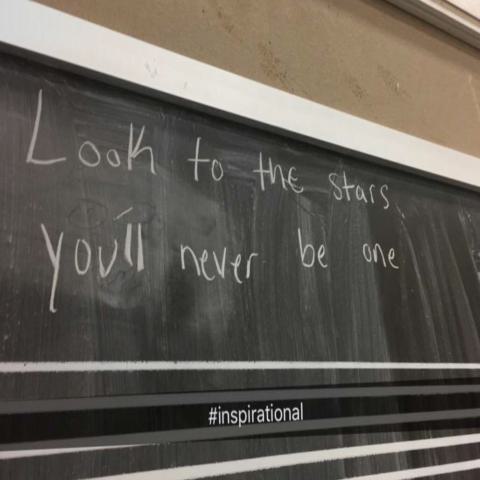 Look to the stars
you'll never be one
#inspirational